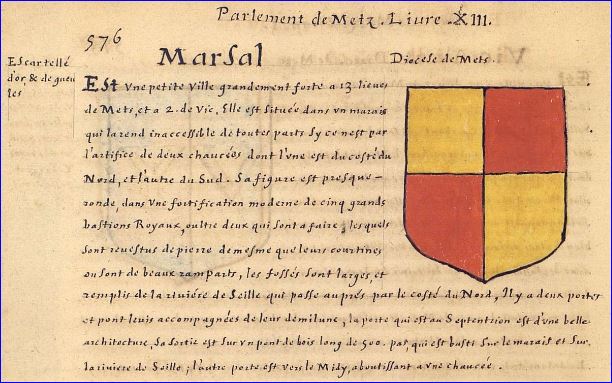 Parlement de Metz. Liure. XIII.
576
Marsal
Diocese de Mets.
Escartellé
d'or, & de gueu
les
Est vne petite ville grandement forte a 13. lieues
de Mets, et a 2. de Vic. Elle est située dans vn marais
qui la rend inaccessible de toutes parts sy ce nest par
l'artifice de deux chaucées dont l'vne est du costé du
Nord, et l'autre du Sud. Sa figure est presque-
ronde, dans vne fortification moderne de cinq grands
bastions Royaux, oultre deux qui sont a faire, lesquels
sont reuestus de pierre de mesme que leurs courtines
ou sont de beaux ramparts, les fossés sont larges, et
remplis de la riuière de Seille qui passe auprés par le costé du Nord, Il y a deux portes
et pont leuis accompagnées de leur demilune, la porte qui est au Septentrion est d'vne belle
architecture, Sa sortie est sur vn pont de bois long de 500. pas, qui est basti sur le marais et sur
la riuiere de Seille; l'autre porte est vers le Midy, aboutissant a vne chaucée.